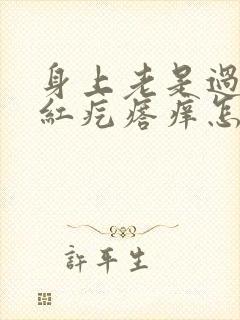 身上老是過
紅疙瘩癢怎
許平生